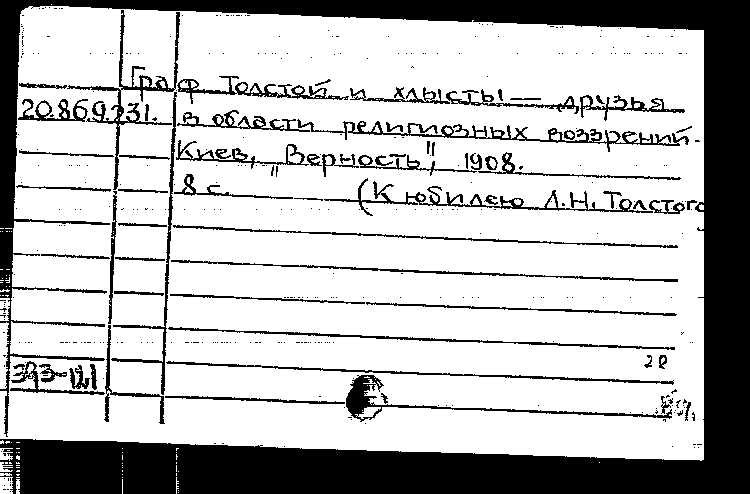 Граф Толстой и хлысты — друзья
20.86.9.231. в области религиозных воззрений.
Киев, "Верность", 1908.
8 с. (К юбилею Л.Н. Толстого
393-121
2р